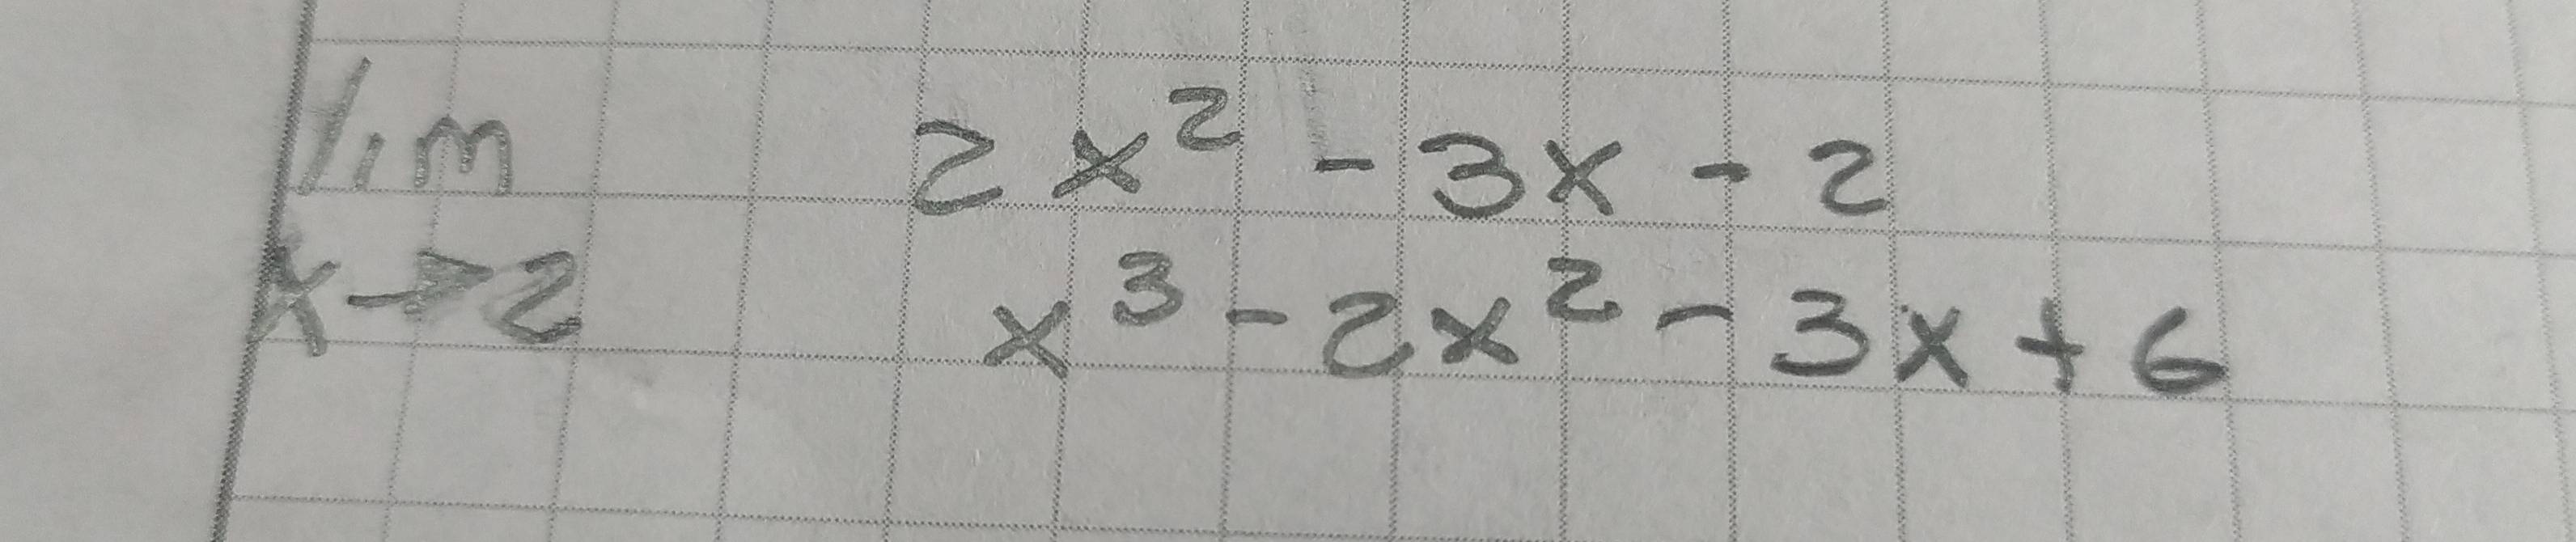 lim 2x² - 3x - 2
x→2 x³ - 2x² - 3x + 6